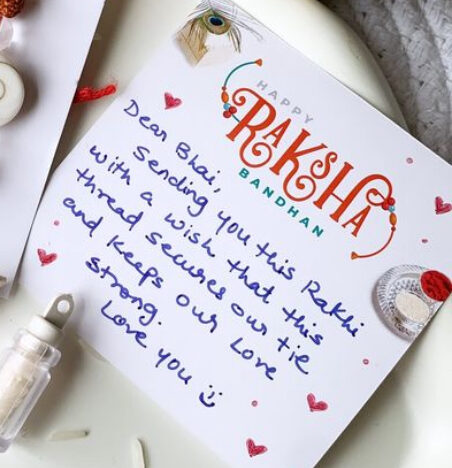 HAPPY
RAKSHA
BANDHAN
Dear Bhai,
Sending you this Rakhi
with a wish that this
thread secures our tie
and keeps our love
strong.
Love you ☺